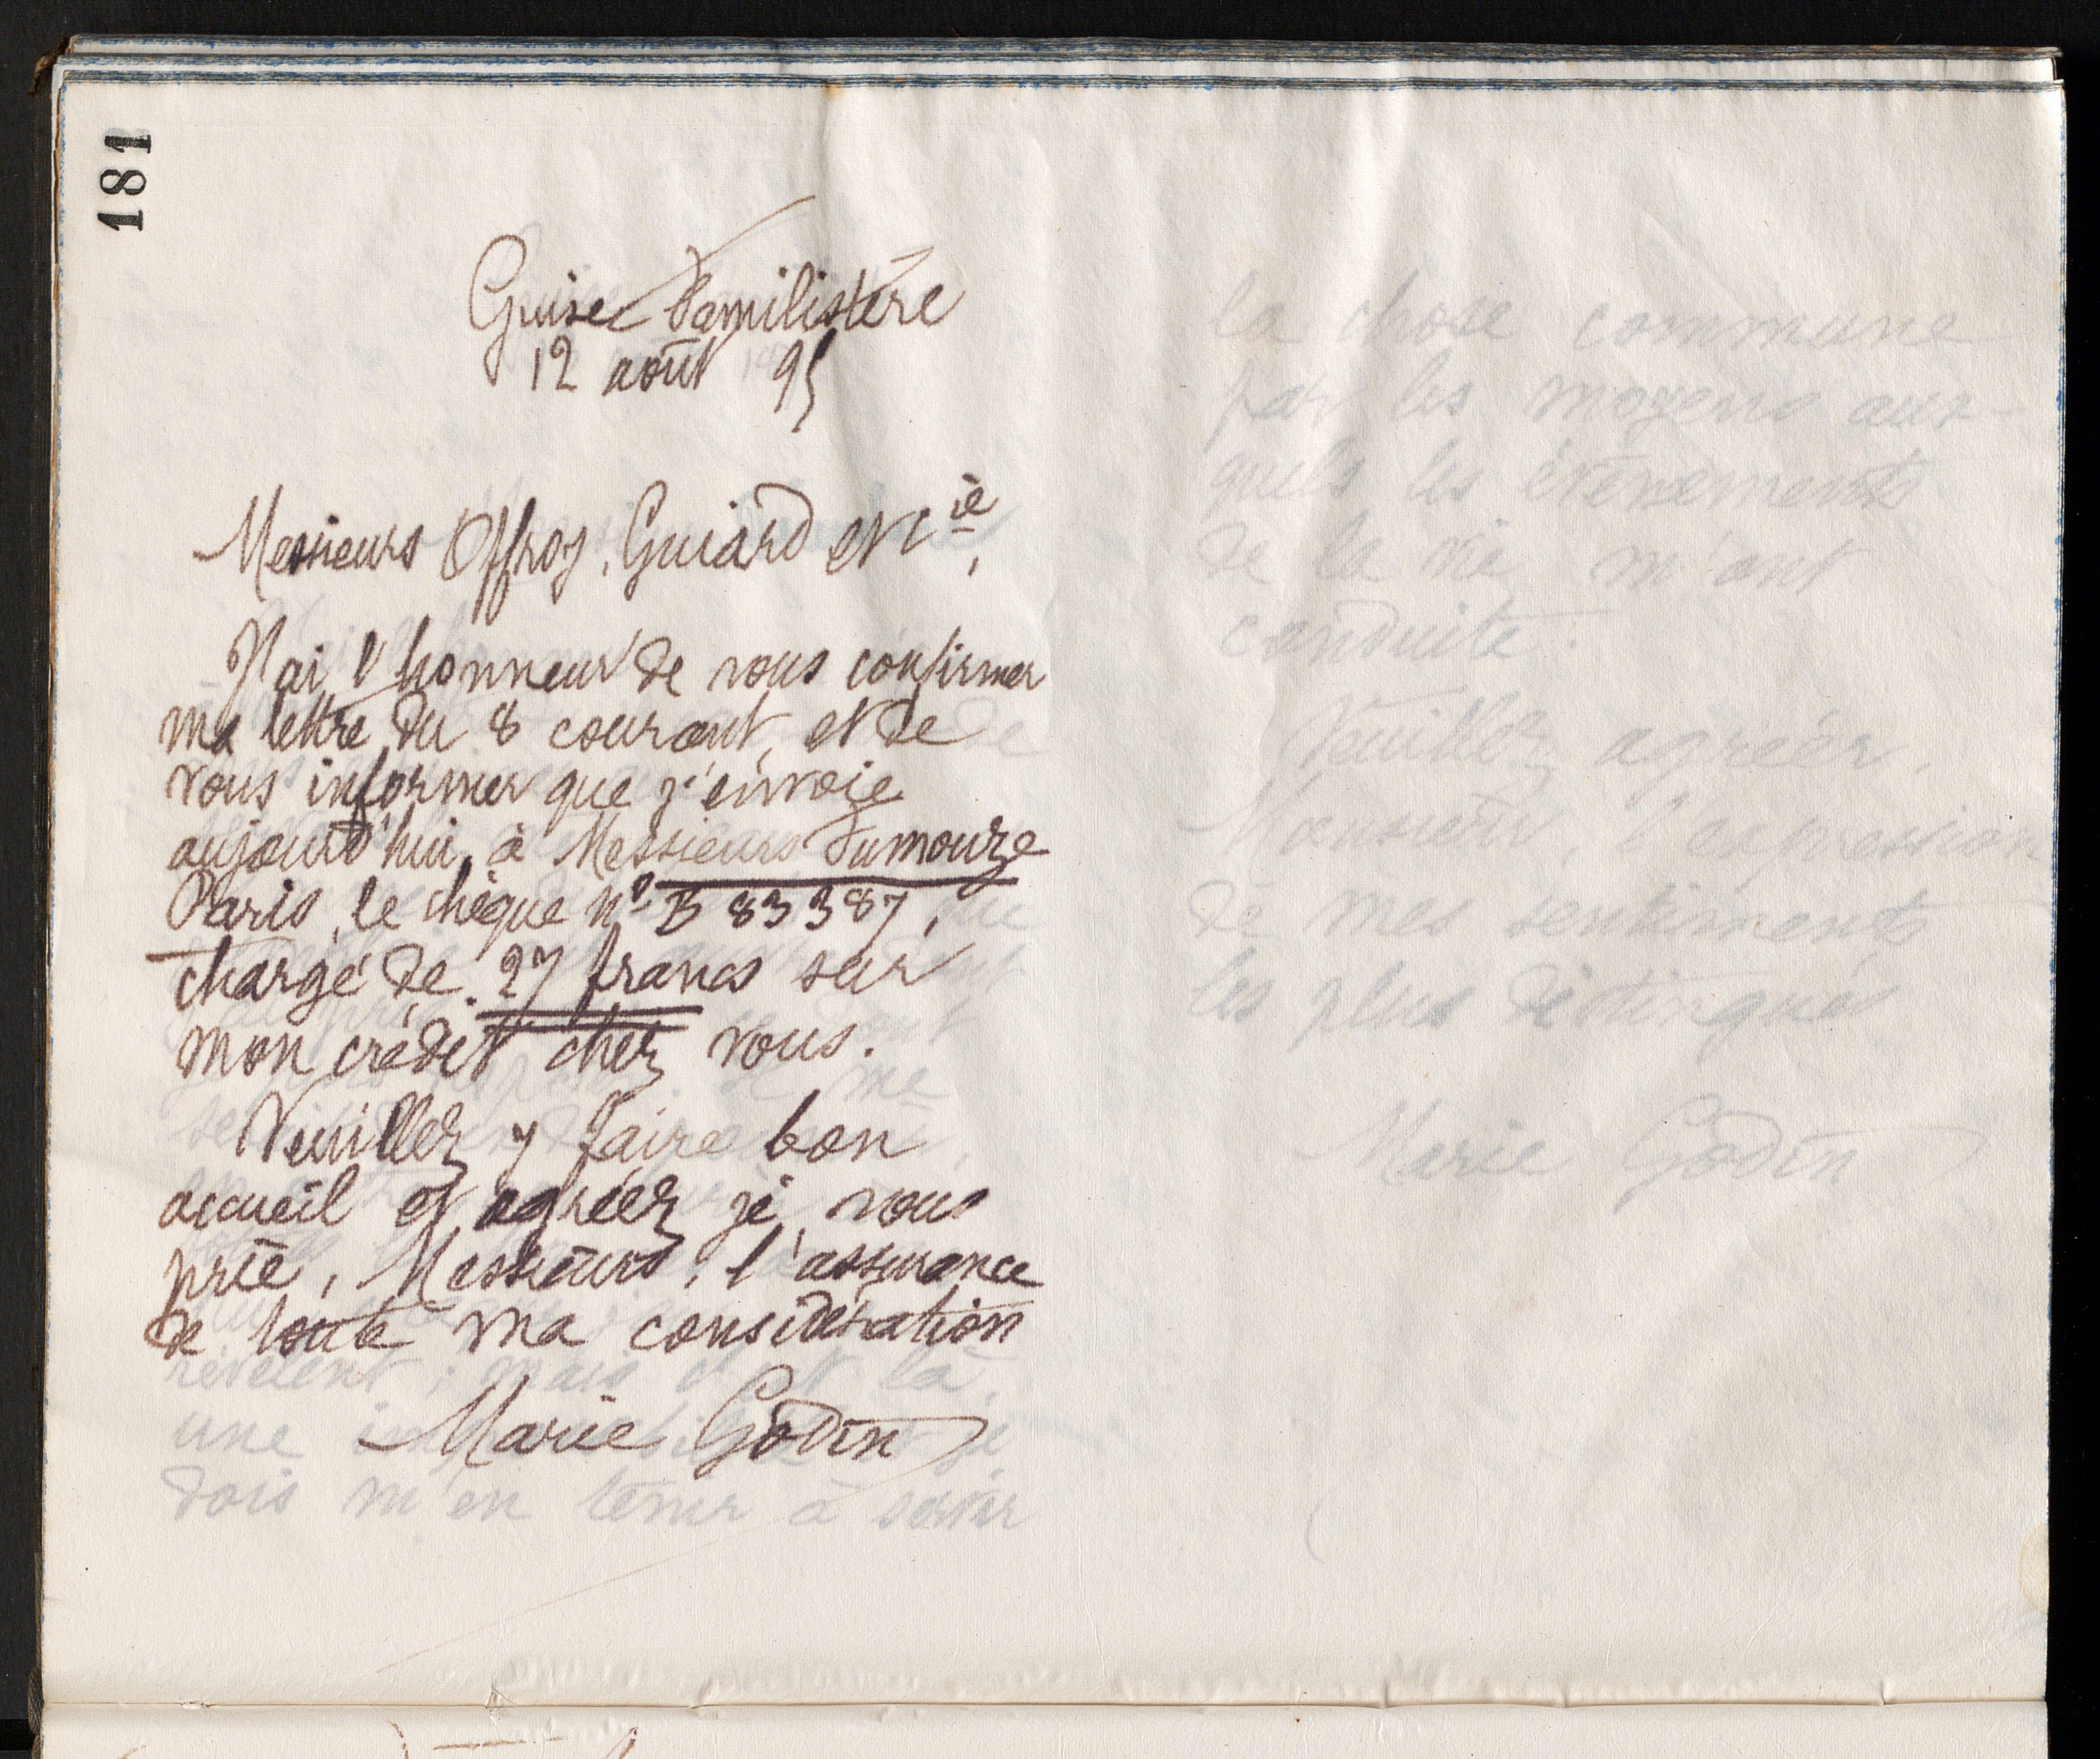 181
Guise Familistère
12 août 95
Messieurs Offroy, Guiard et Cie,
J'ai l'honneur de vous confirmer
ma lettre du 8 courant, et de
vous informer que j'envoie
aujourd'hui, à Messieurs Fumouze
Paris, le chèque no B 83387,
chargé de 27 francs sur
mon crédit chez vous.
Veuillez y faire bon
accueil et agréer je vous
prie, Messieurs, l'assurance
de toute ma considération
Marie Godin
une
dois m'en tenir à servir
la chose commune
par les moyens aux-
quels les évènements
de la vie m'ont
conduite.
Veuillez agréer,
Monsieur, l'expression
de mes sentiments
les plus distingués
Marie Godin